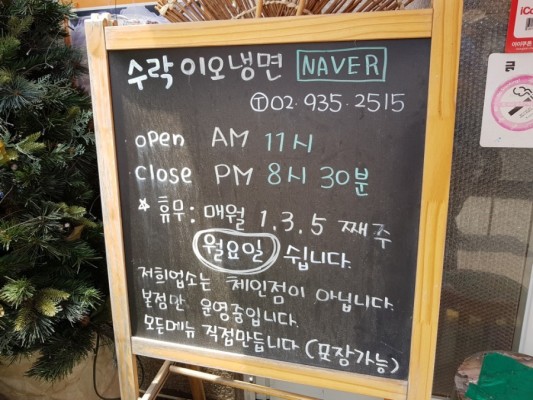 수락 이오냉면 NAVER
Ⓣ 02. 935. 2515
open AM 11시
close PM 8시 30분
☆ 휴무: 매월 1. 3. 5 째주
월요일 쉽니다.
저희업소는 체인점이 아닙니다.
본점만 운영중입니다.
모든메뉴 직접만듭니다 (포장가능)